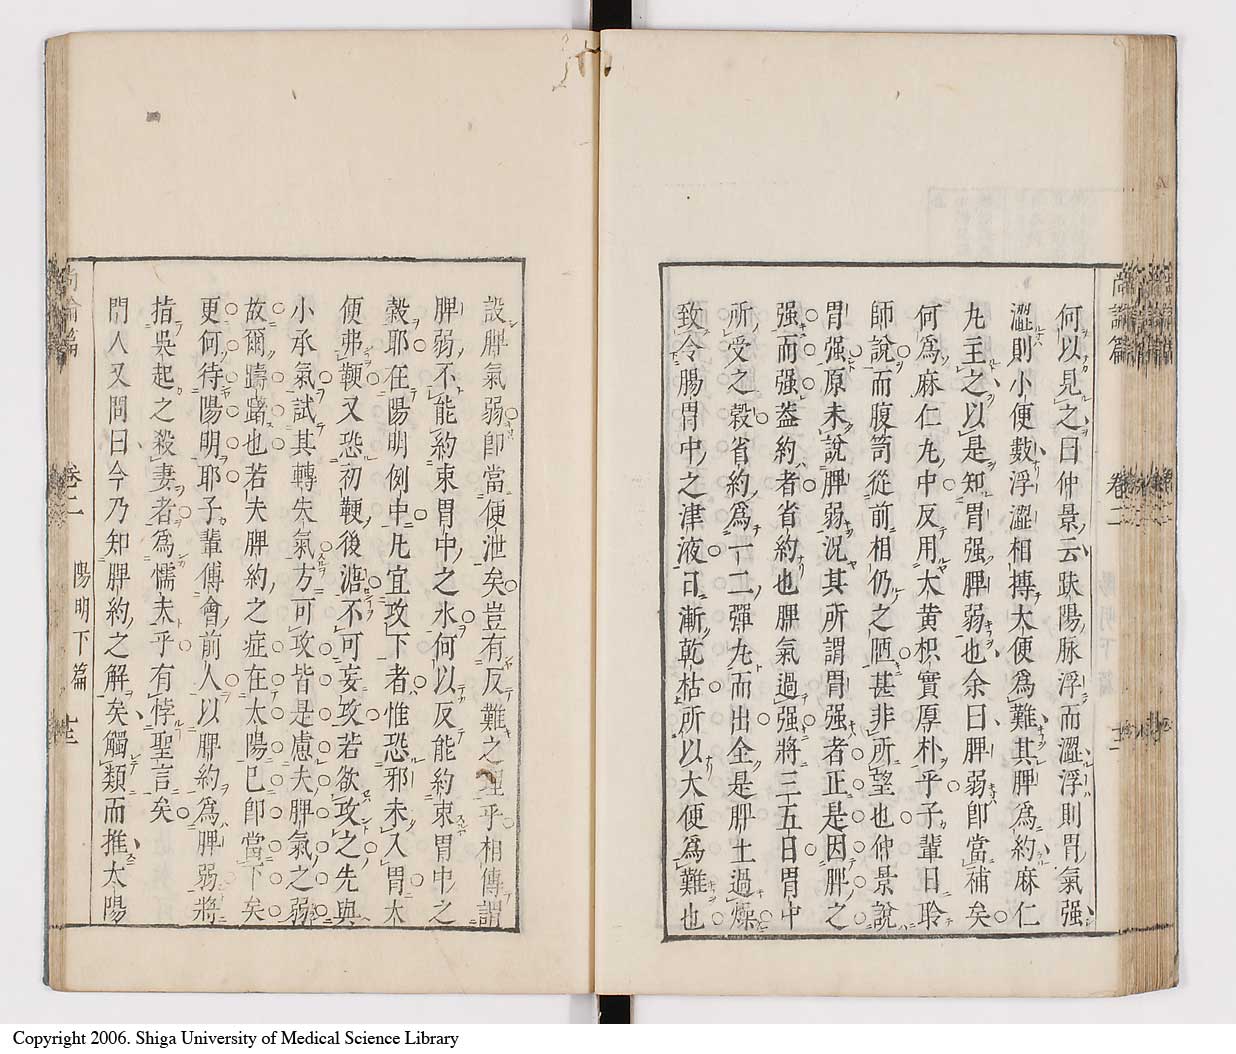 何以見之曰仲景云趺陽脉浮而澀浮則胃氣强
澀則小便數浮澀相搏大便爲難其脾爲約麻仁
丸主之以是知胃强脾弱也余曰脾弱卽當補矣
何爲麻仁丸中反用大黄枳實厚朴乎子輩日聆
師說而腹笥從前相仍之陋甚非所望也仲景說
胃强原未說脾弱况其所謂胃强者正是因脾之
强而强盖約者省約也脾氣過强將三五日胃中
所受之穀省約爲一二彈丸而出全是脾土過燥
致令腸胃中之津液日漸乾枯所以大便爲難也
設脾氣弱卽當便泄矣豈有反難之理乎相傳謂
脾弱不能約束胃中之水何以反能約束胃中之
穀耶在陽明例中凡宜攻下者惟恐邪未入胃大
便弗鞕又恐初鞕後溏不可妄攻若欲攻之先與
小承氣試其轉失氣方可攻皆是慮夫脾氣之弱
故爾躊躇也若夫脾約之症在太陽已卽當下矣
更何待陽明耶子輩傅會前人以脾約爲脾弱將
指吳起之殺妻者爲懦夫乎有悖聖言矣
門人又問曰今乃知脾約之解矣觸類而推太陽
尚論篇 卷二 陽明下篇
Copyright 2006. Shiga University of Medical Science Library